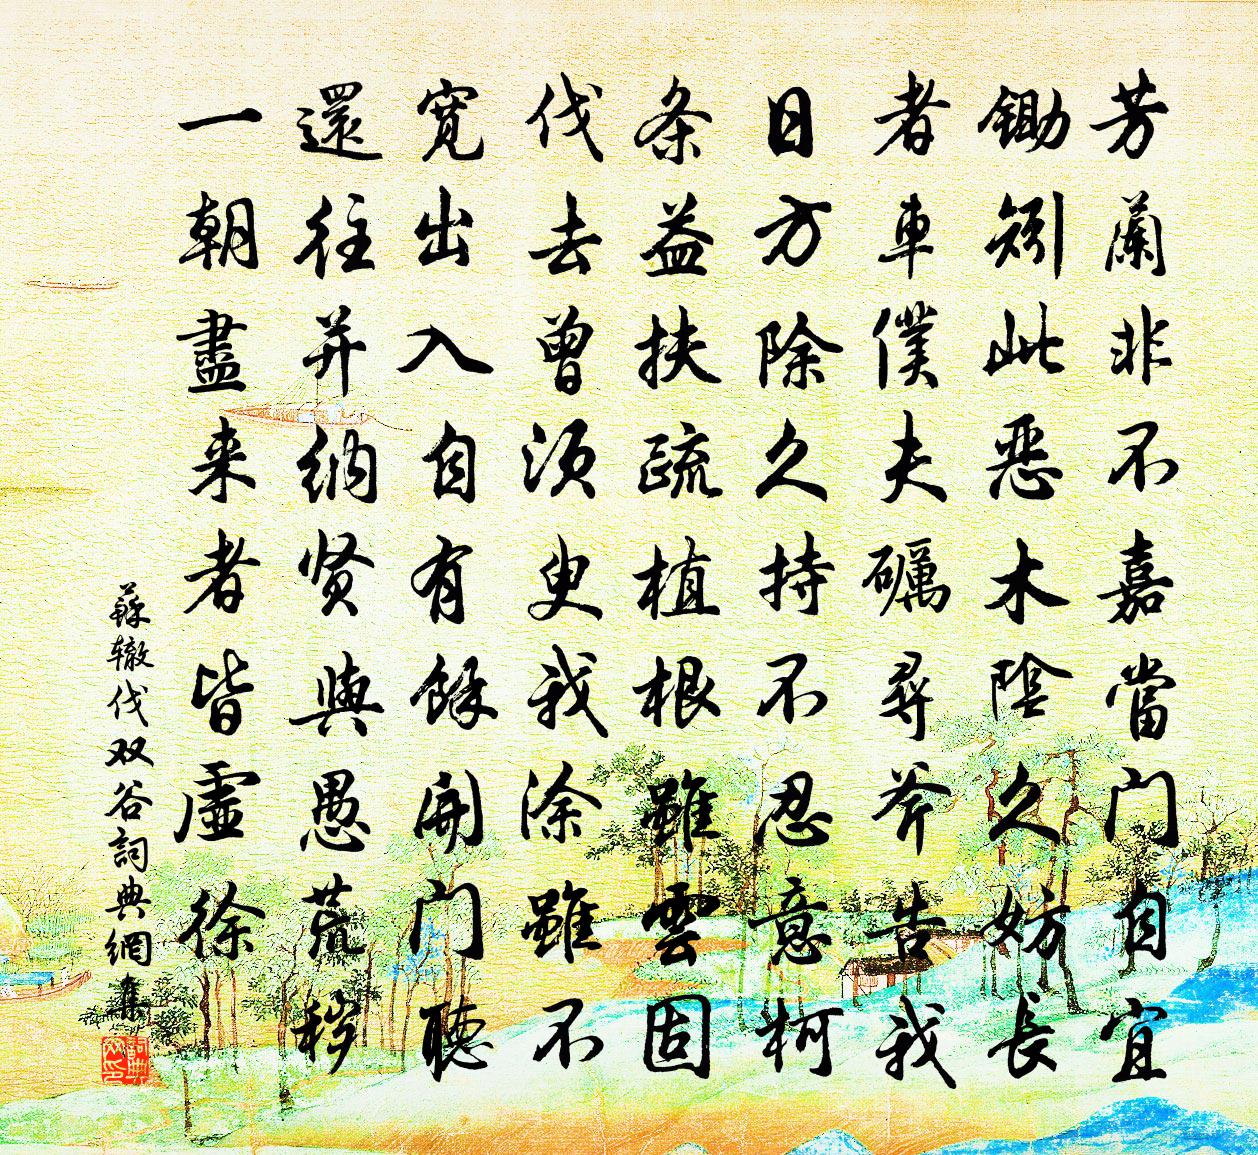 芳蘭非不嘉當门自宜
鋤矧此恶木陰久妨長
者車僕夫礪尋斧告我
日方除久持不忍意柯
条益扶疏植根雖雲固
伐去曾须臾我涂雖不
寬出入自有餘開门聽
還往并纳贤與愚荒秽
一朝盡来者皆虛徐
蘇辙伐双谷詞典網集